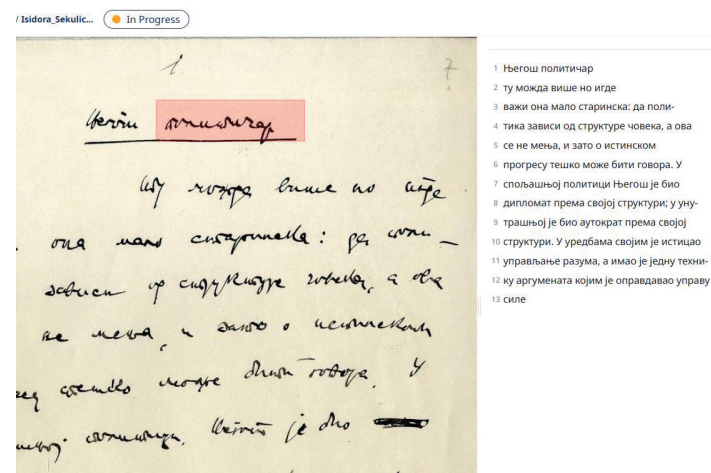 / Isidora_Sekulic...
In Progress
1
7
Његош политичар
ту можда више но игде
она мало старинска: да поли-
зависи од структуре човека, а ова
се не мења, и зато о истинском
тешко може бити говора. У
политици Његош је био
1 Његош политичар
2 ту можда више но игде
3 важи она мало старинска: да поли-
4 тика зависи од структуре човека, а ова
5 се не мења, и зато о истинском
6 прогресу тешко може бити говора. У
7 спољашњој политици Његош је био
8 дипломат према својој структури; у уну-
9 трашњој је био аутократ према својој
10 структури. У уредбама својим је истицао
11 управљање разума, а имао је једну техни-
12 ку аргумената којим је оправдавао управу
13 силе